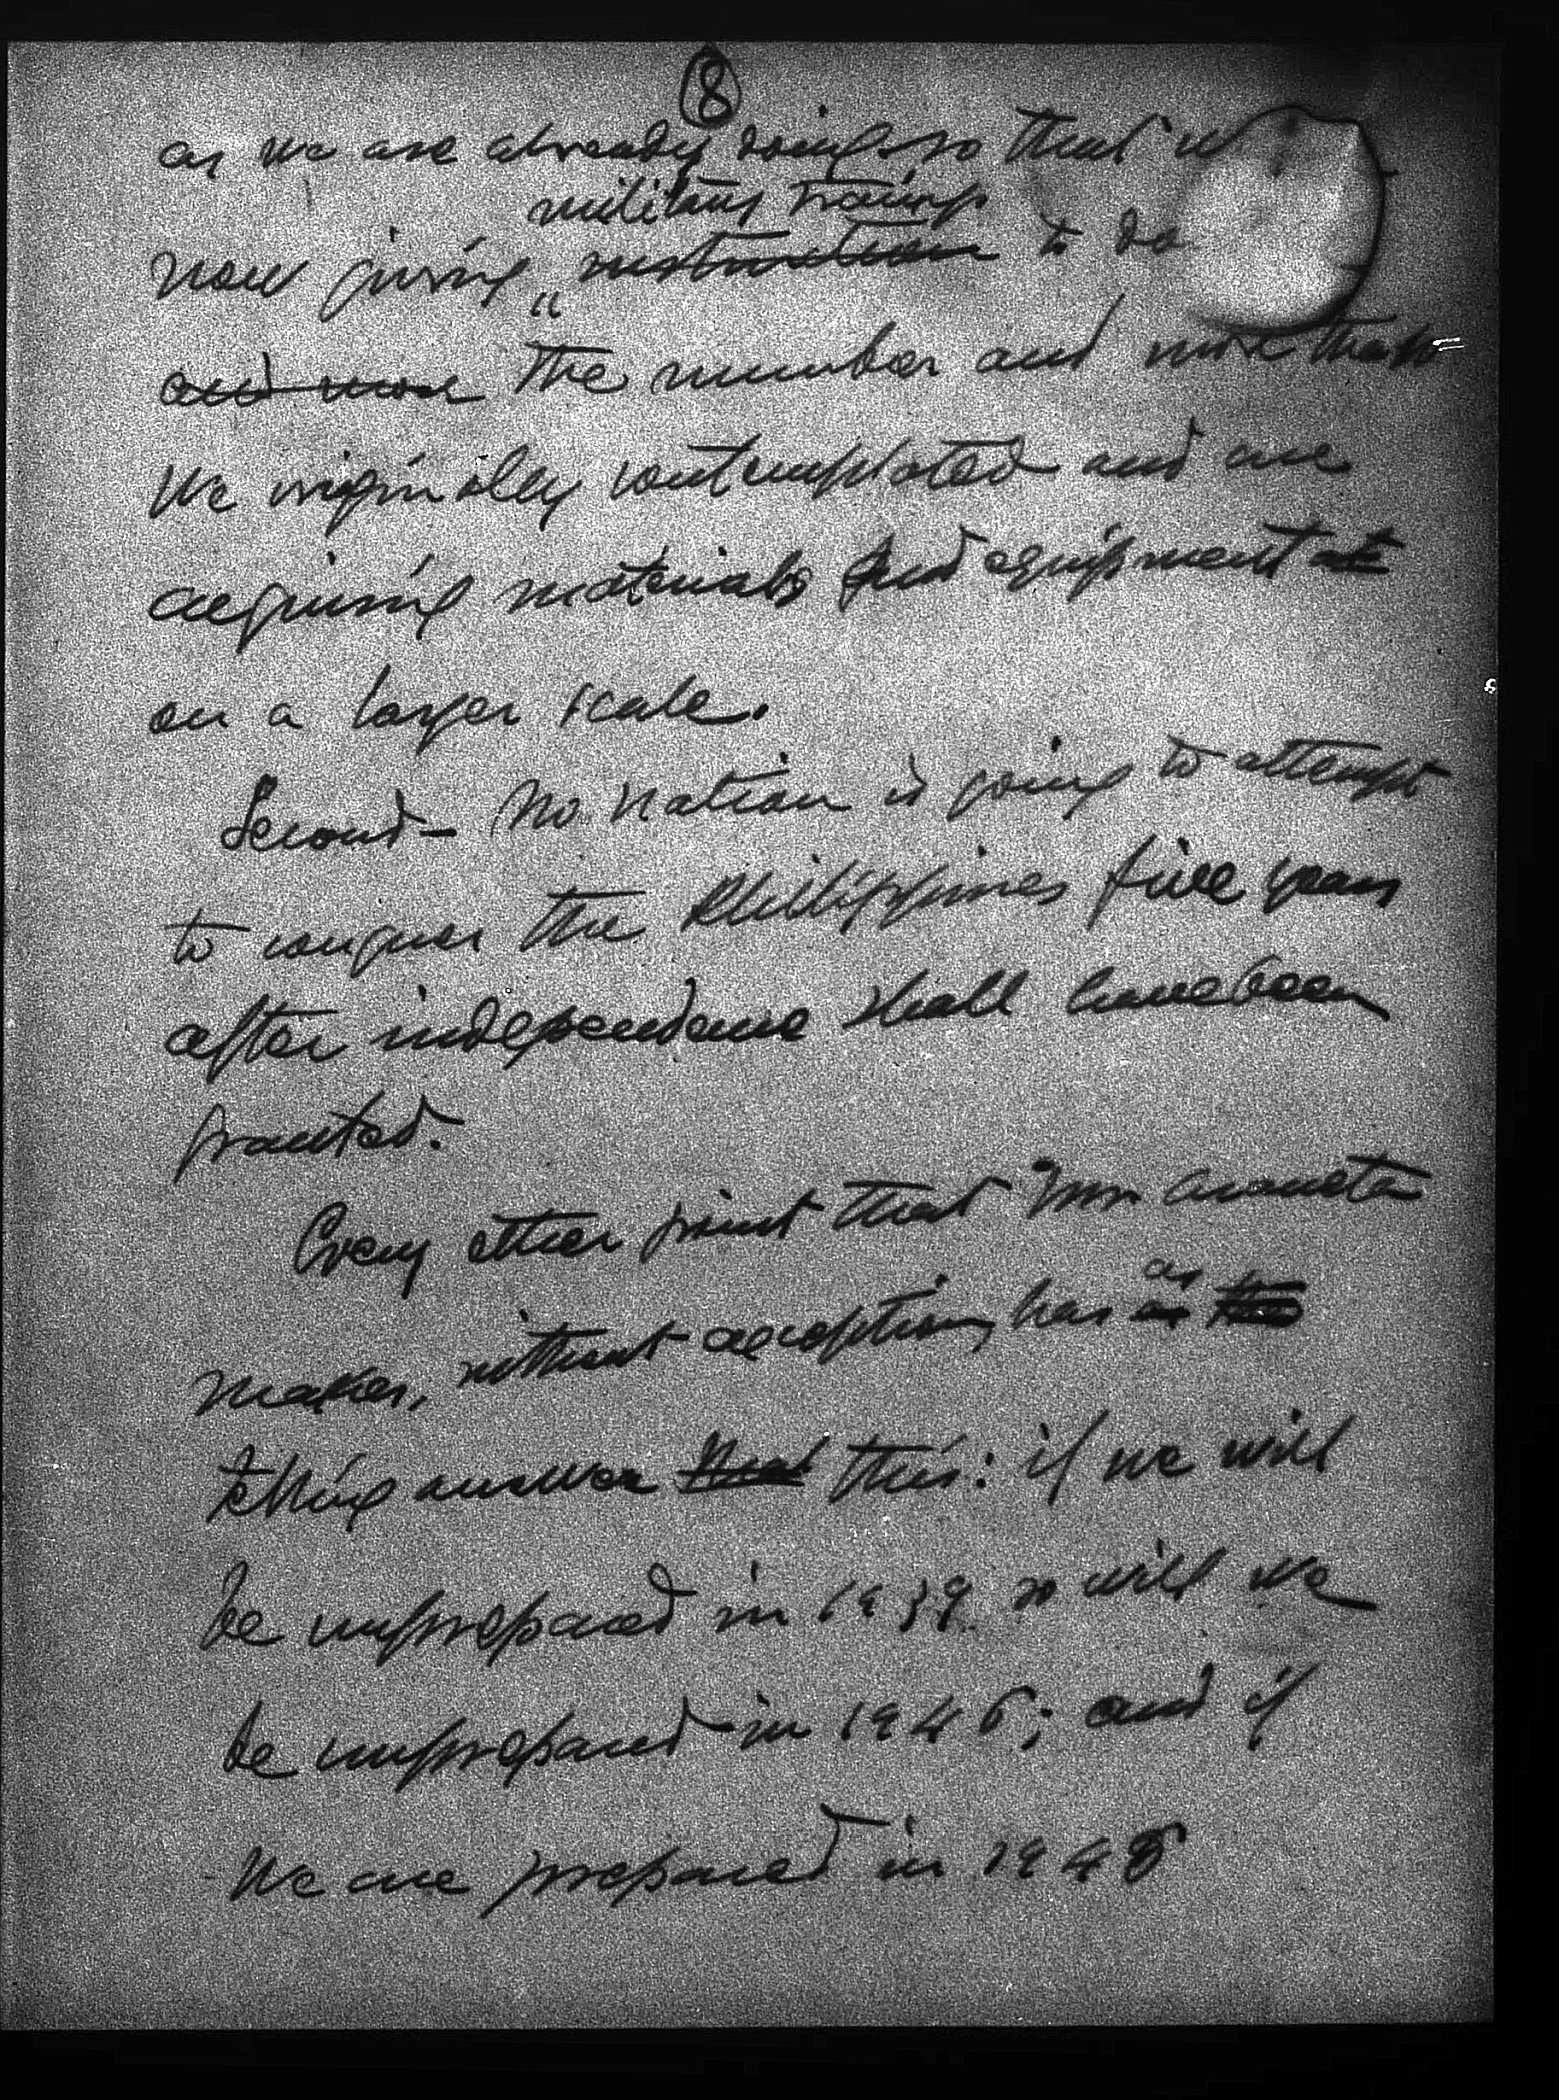 8
as we are already doing so that w
military training
now giving instruction to do
and more the number and more than
we originally contemplated and are
acquiring materials and equipment at
on a larger scale.
Second - No nation is going to attempt
to conquer the Philippines five years
after independence shall have been
granted.
Every other point that Mr. Araneta
makes, without exception, has as
telling answer that this: if we will
be unprepared in 1939 so will we
be unprepared in 1946; and if
we are prepared in 1946